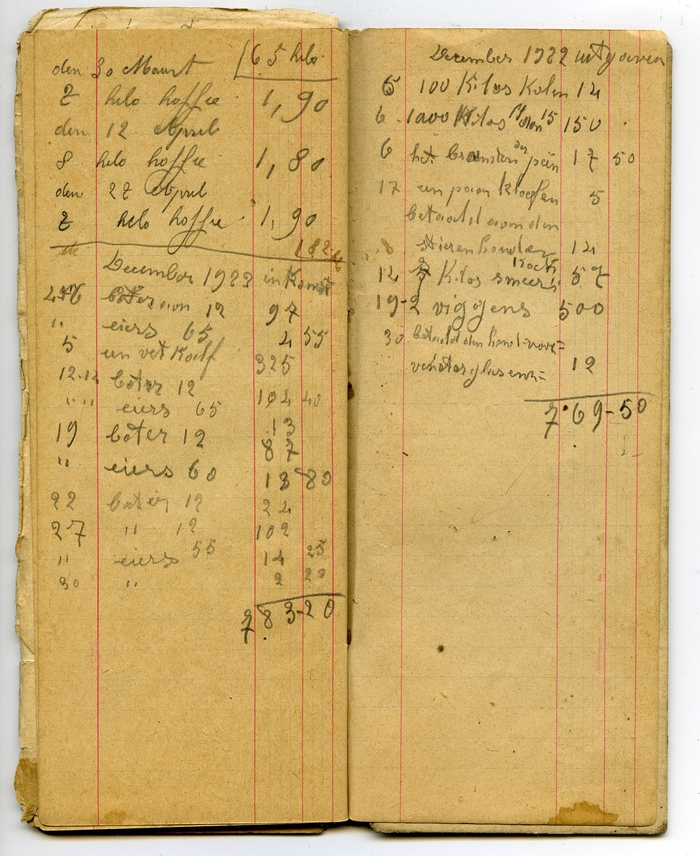 den 30 Maart 65 kilo
2 kilo koffie 1,90
den 12 April
8 kilo koffie 1,80
den 22 April
2 kilo koffie 1,90
182
December 1922 inkomst
boter aan 12 97
" eiers 65 4 55
5 een vet Kalf 325
12-12 boter 12 104 40
" " eiers 65 13
19 boter 12 87
" eiers 60 13 80
22 boter 12 24
27 " 12 102
" eiers 55 14 25
30 " 2 20
783-20
December 1922 uitgaven
5 100 Kilos Kolen 14
6 1000 Kilos 15 150
6 het branden 17 50
17 een paar Kloefen 5
betaald aan den
Stierenhouder 14
12 Kilos smeer 57
19-2 viggens 500
30 betaald aan
12
769-50